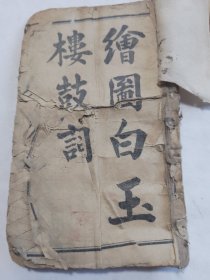 繪圖白玉
樓鼓詞